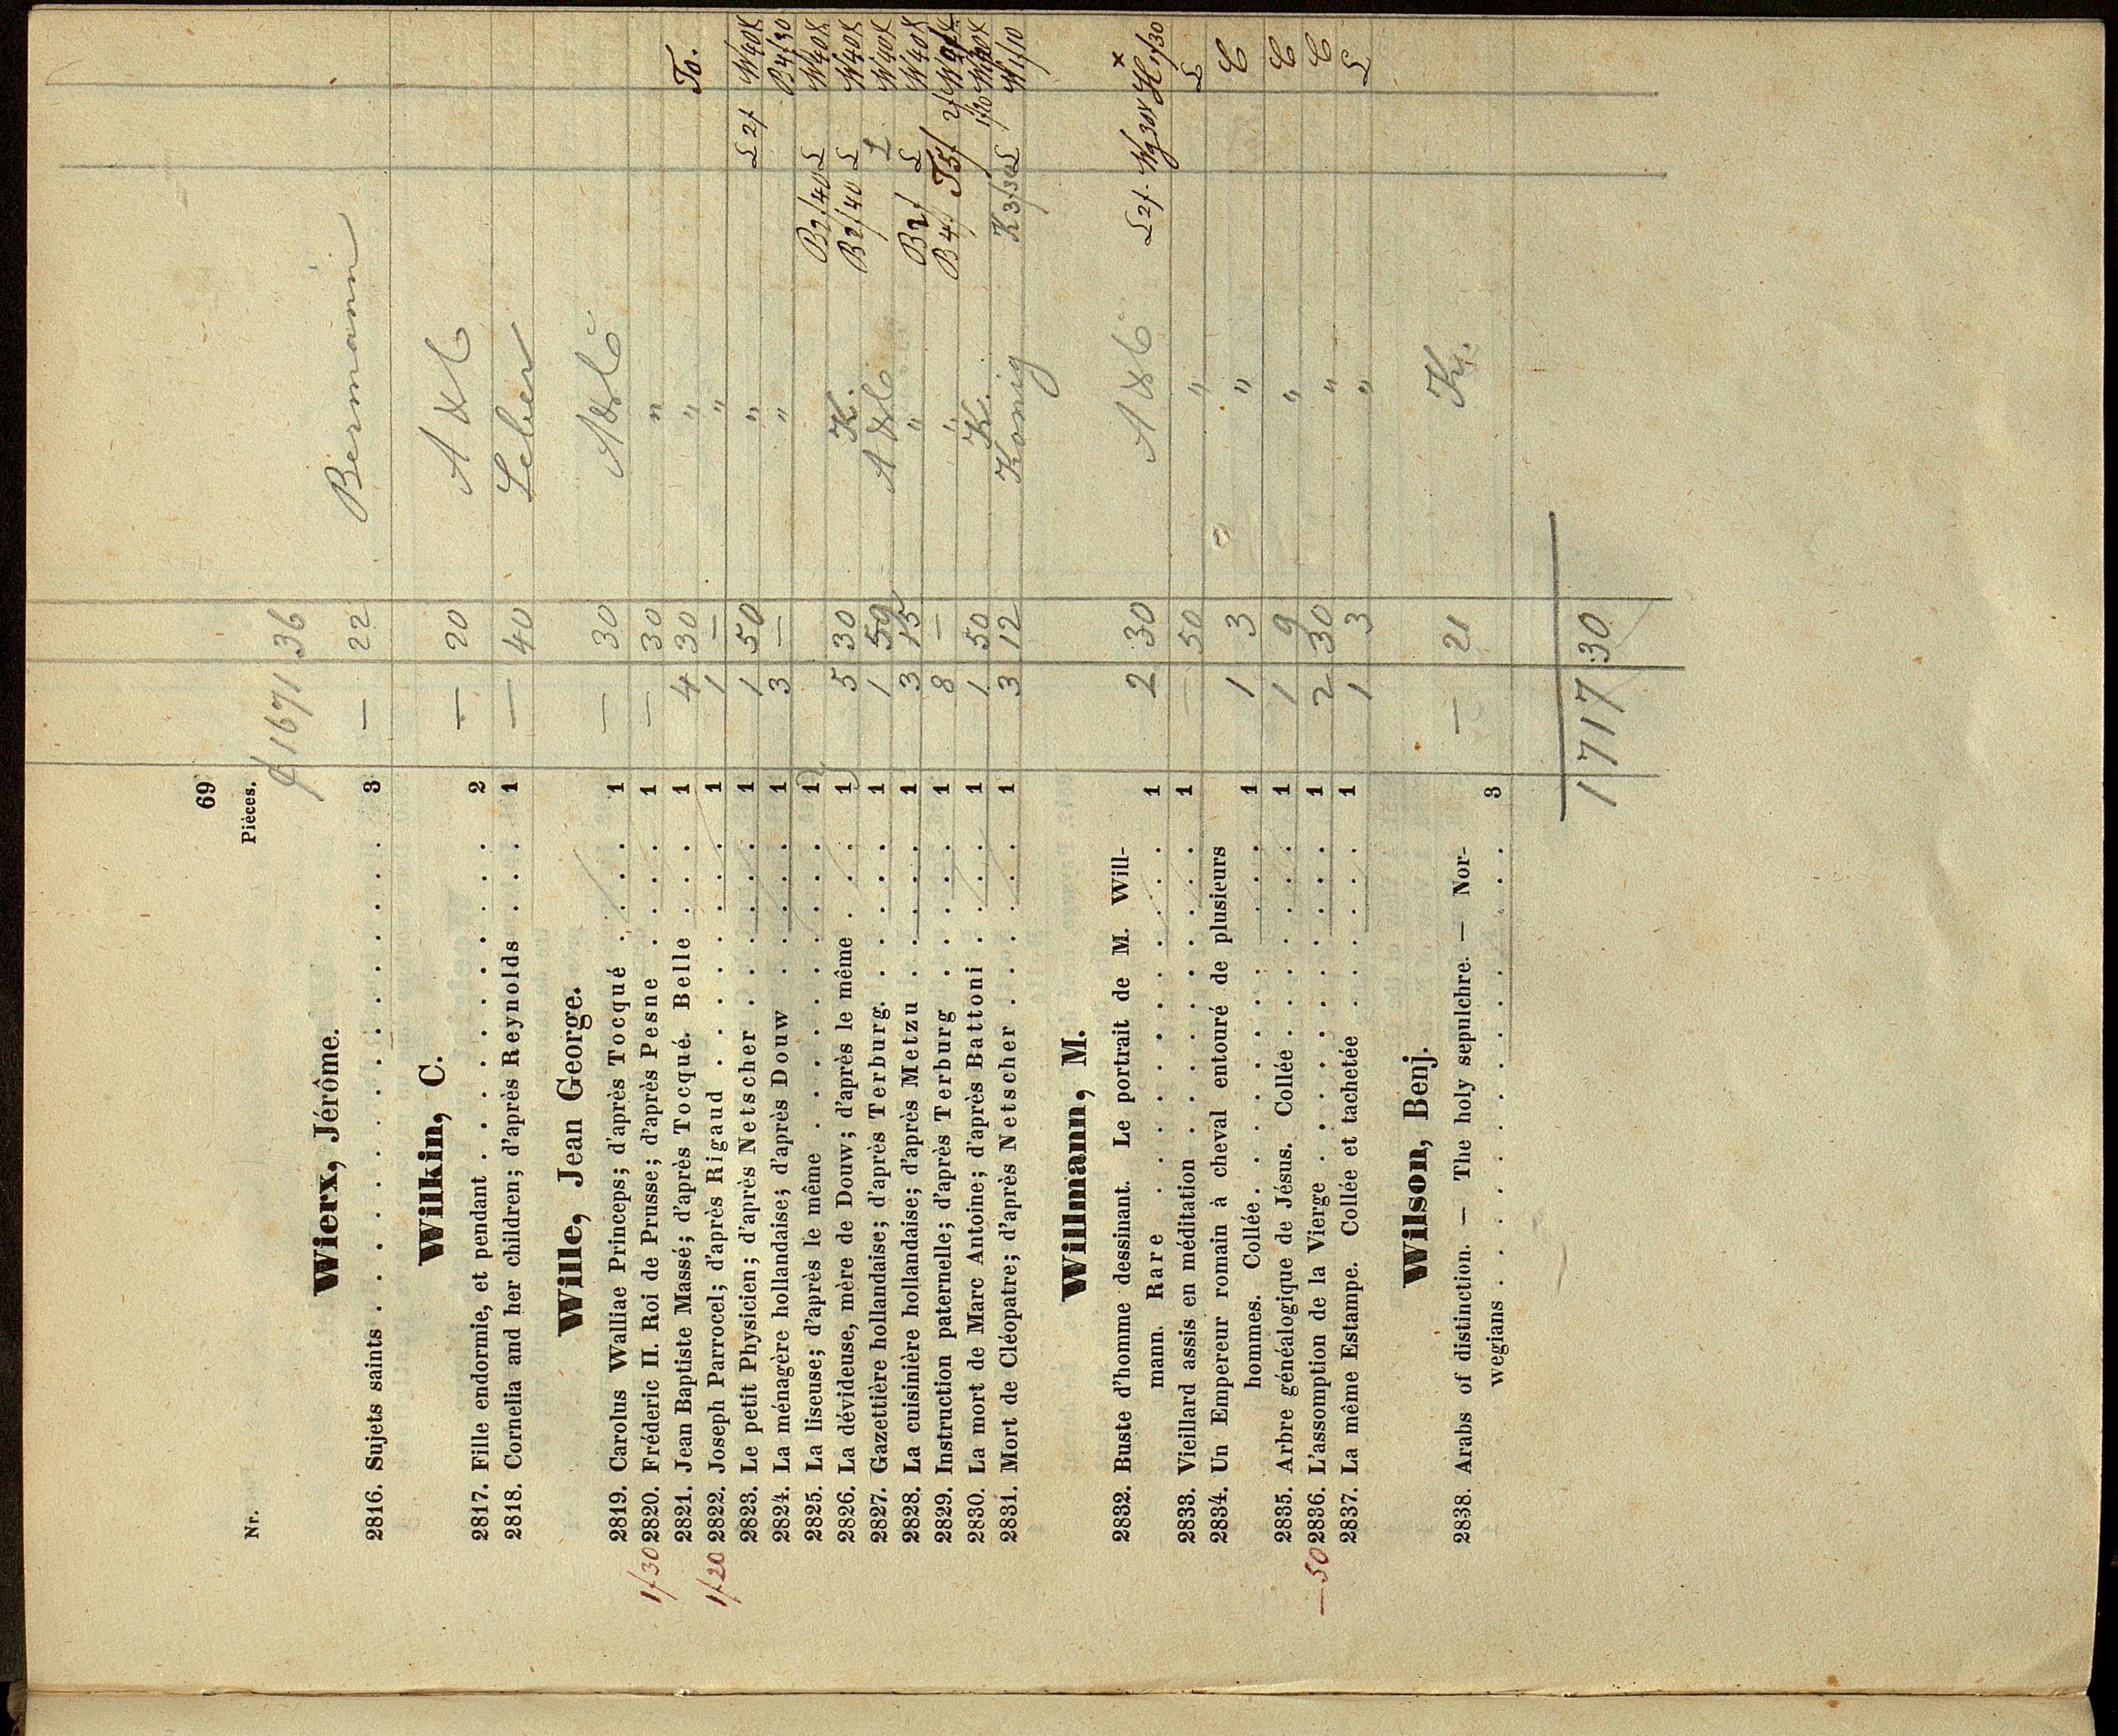 69
Nr. Pièces.
f 1671 36
Wierx, Jérôme.
2816. Sujets saints . . . . . . . . . . . . . . . . 3 — 22 Bermann
Wilkin, C.
2817. Fille endormie, et pendant . . . . . . . . . . 2 — 20 A & C
2818. Cornelia and her children; d'après Reynolds . . . . 1 — 40
Wille, Jean George.
2819. Carolus Walliae Princeps; d'après Tocqué . . . . 1 — 30 A & C
1f30 2820. Fréderic II. Roi de Prusse; d'après Pesne . . . . 1 — 30 "
2821. Jean Baptiste Massé; d'après Tocqué. Belle . . . . 1 4 30 " To.
1f20 2822. Joseph Parrocel; d'après Rigaud . . . . . . 1 1 — "
2823. Le petit Physicien; d'après Netscher . . . . . 1 1 50 " L 2f
2824. La ménagère hollandaise; d'après Douw . . . . 1 3 — " B 4f30
2825. La liseuse; d'après le même . . . . . . . 1 B2f40 L
2826. La dévideuse, mère de Douw; d'après le même . . . 1 5 30 K. B2f40 L
2827. Gazettière hollandaise; d'après Terburg. . . . . 1 1 50 A & C L
2828. La cuisinière hollandaise; d'après Metzu . . . . 1 3 15 " B2f L
2829. Instruction paternelle; d'après Terburg . . . . 1 8 — " B4f T5f
2830. La mort de Marc Antoine; d'après Battoni . . . . 1 1 50 K.
2831. Mort de Cléopatre; d'après Netscher . . . . . 1 3 12 König K3f30 L
Willmann, M.
2832. Buste d'homme dessinant. Le portrait de M. Will-
mann. Rare . . . . . . . . . . . 1 2 30 A & C L2f
2833. Vieillard assis en méditation . . . . . . . . 1 — 50 " L
2834. Un Empereur romain à cheval entouré de plusieurs
hommes. Collée . . . . . . . . . . . 1 1 3 " C
2835. Arbre généalogique de Jésus. Collée . . . . . . 1 1 9 " C
—50 2836. L'assomption de la Vierge . . . . . . . . . 1 2 30 " C
2837. La même Estampe. Collée et tachetée . . . . . 1 1 3 " L
Wilson, Benj.
2838. Arabs of distinction. — The holy sepulchre. — Nor-
wegians . . . . . . . . . . . . . . 3 — 21
1717 30